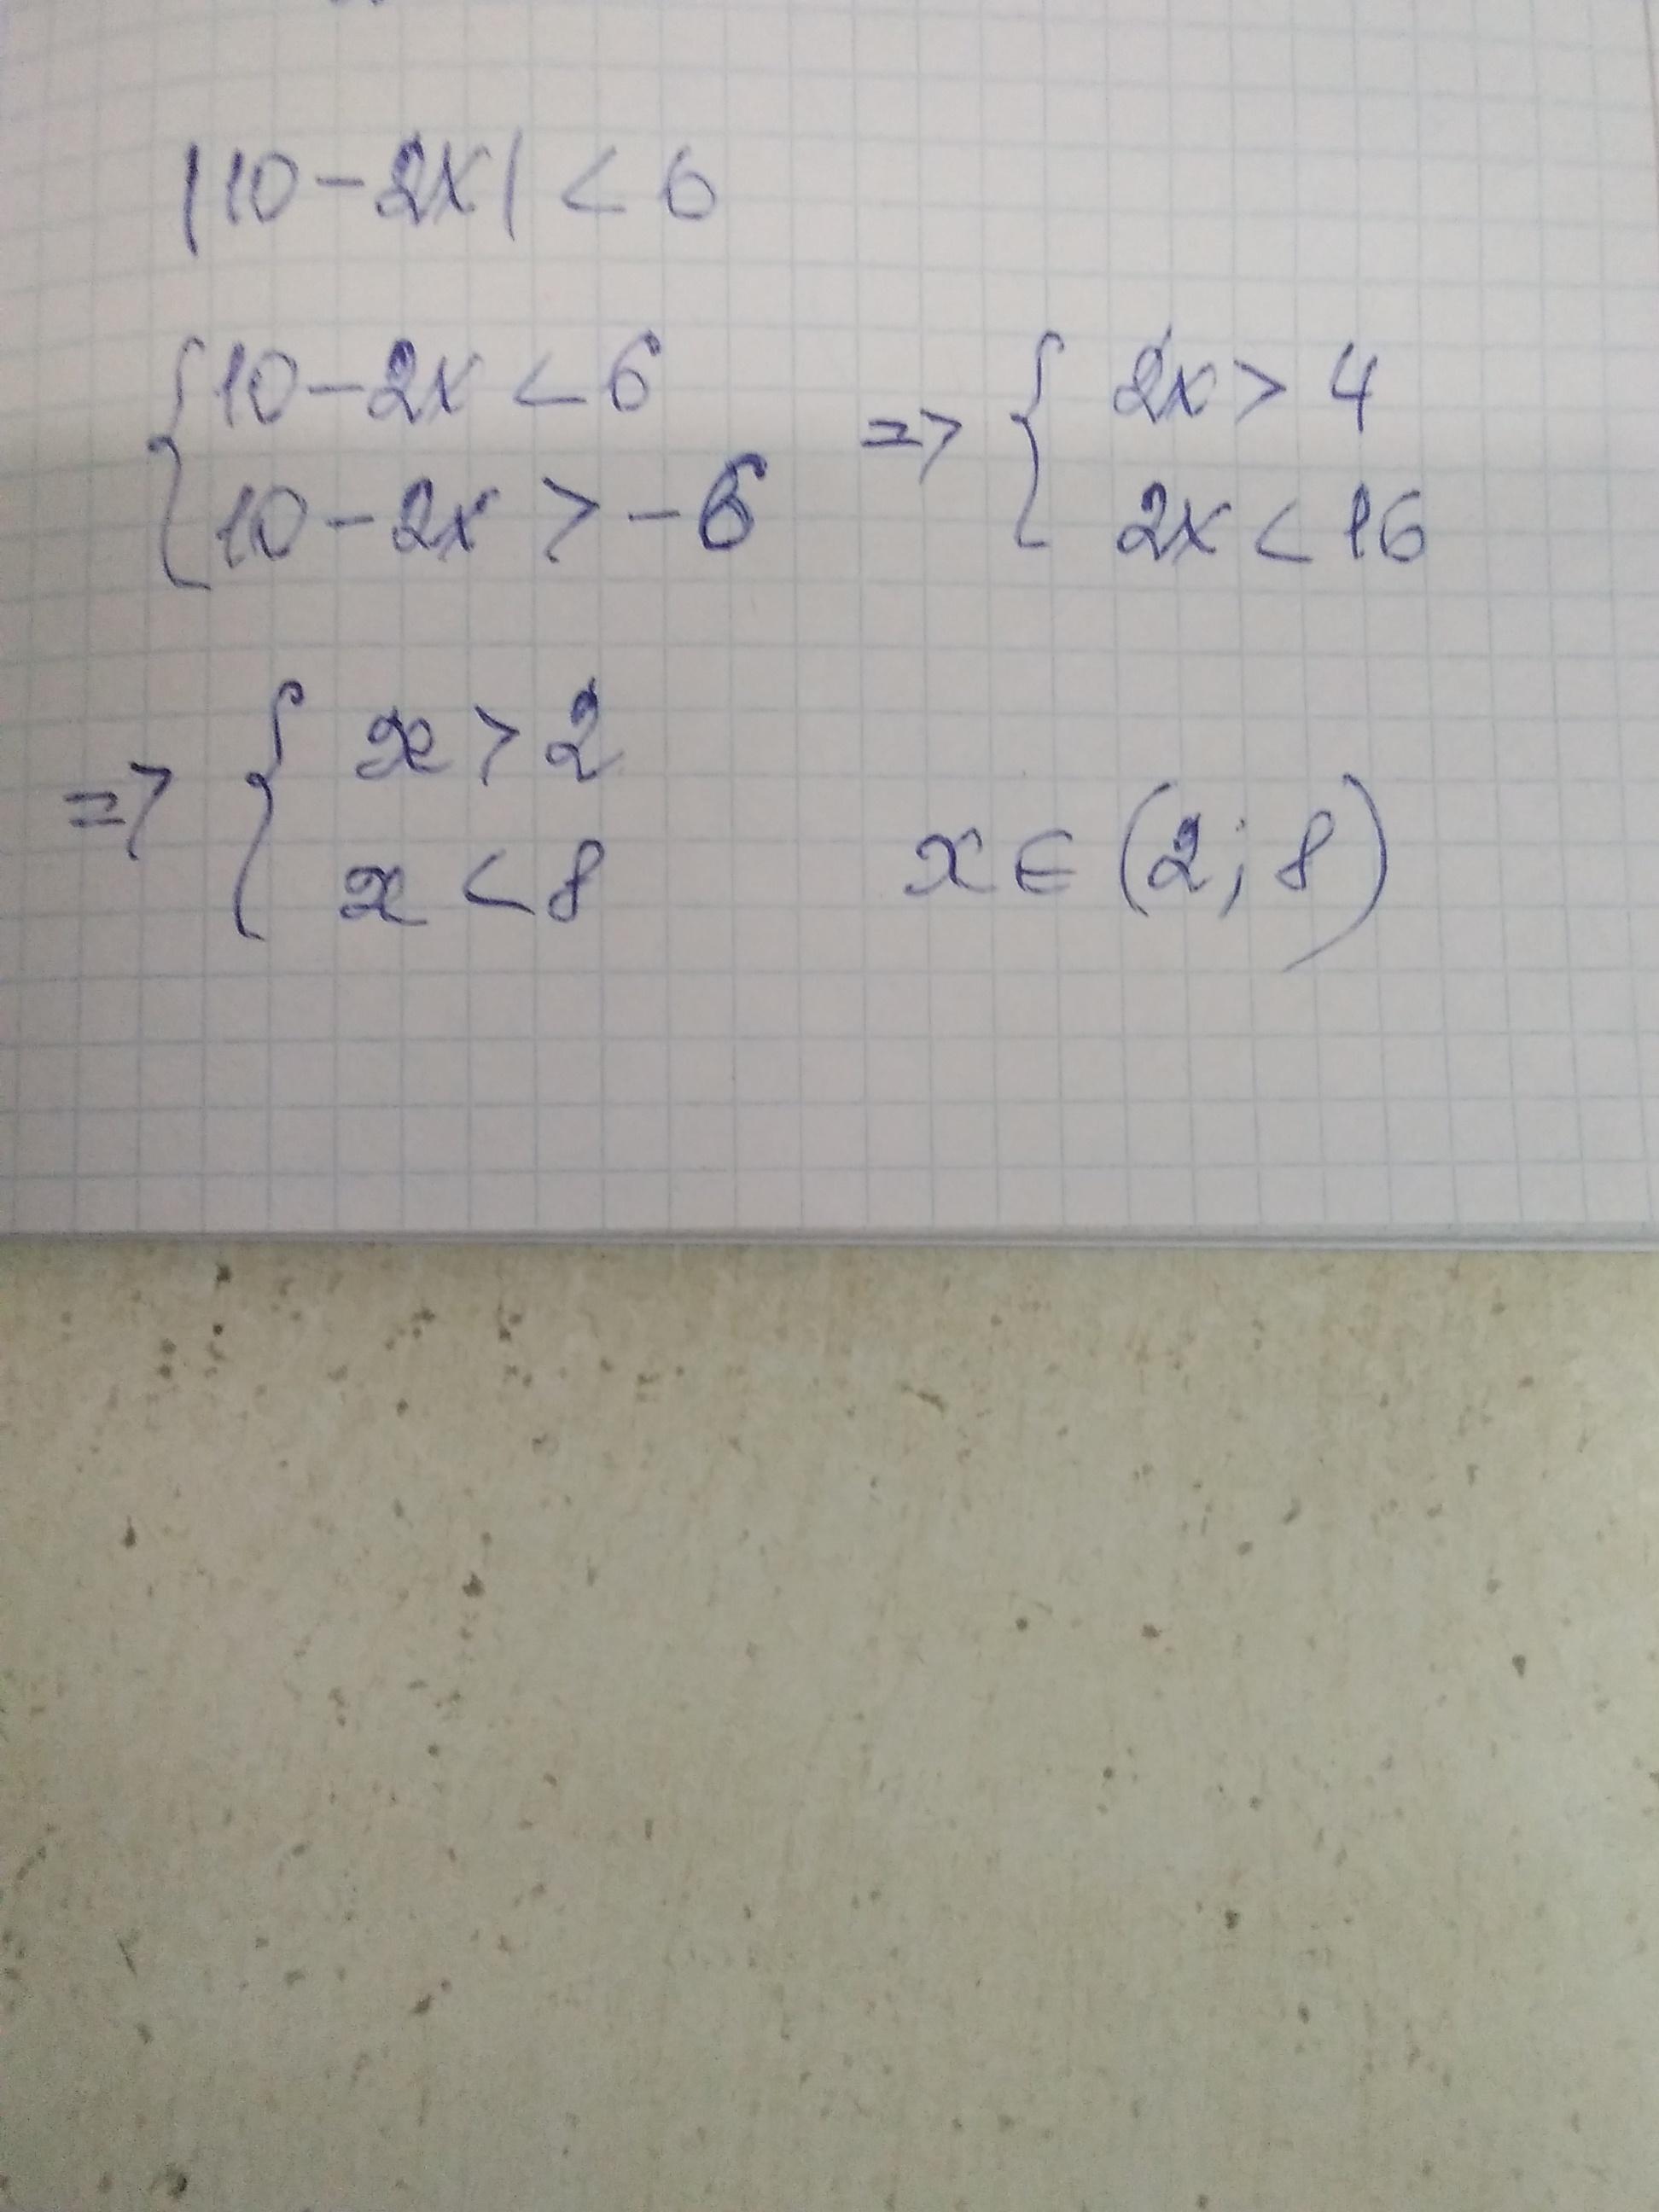 |10-2x| < 6
{10-2x < 6
{10-2x > -6
=> { 2x > 4
{ 2x < 16
=> { x > 2
{ x < 8
x ∈ (2; 8)